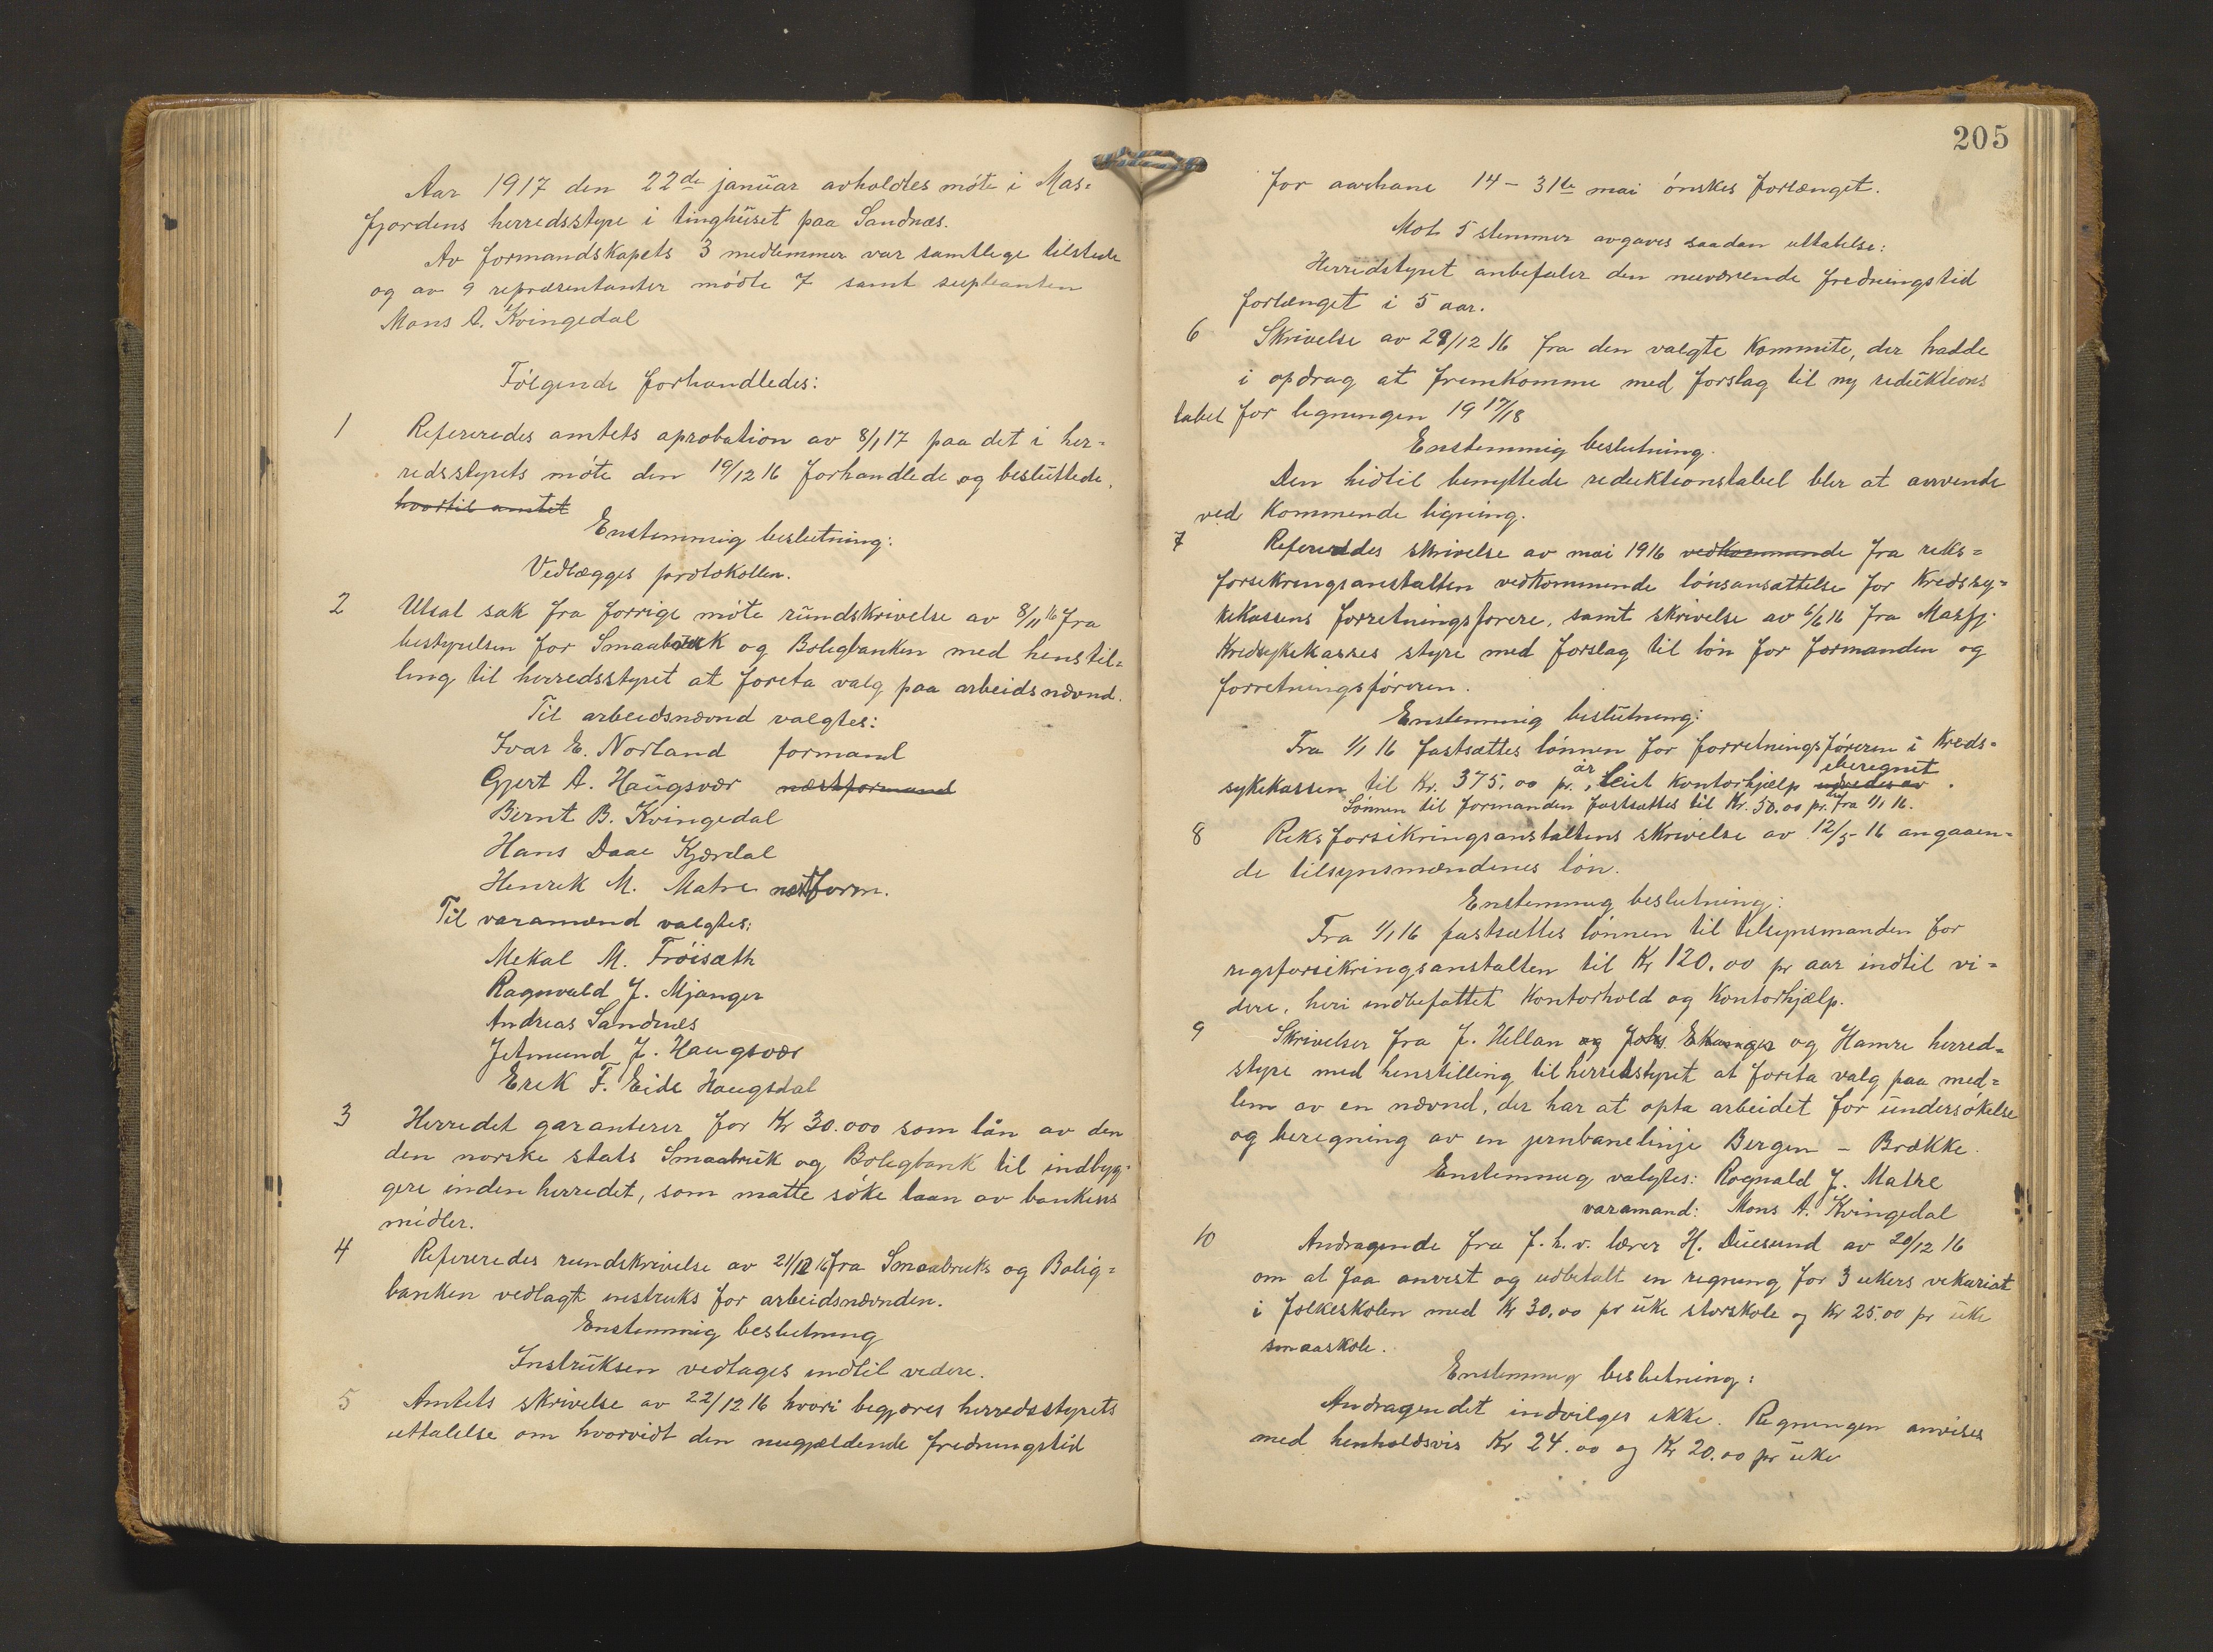 Aar 1917 den 22de januar avholdtes møte i Mas-
fjordens herredsstyre i tinghuset paa Sandnæs.
Av formandskapets 3 medlemmer var samtlege tilstede
og av 9 repræsentanter møtte 7 samt supleanten
Mons A. Kvingedal
Følgende forhandledes:
1 Refereredes amtets aprobation av 8/1 17 paa det i her-
redsstyrets møte den 19/12 16 forhandlede og besluttede,
hvortil amtet
Enstemmig beslutning:
Vedlægges protokollen.
2 Utsat sak fra forrige møte rundskrivelse av 8/11 16 fra
bestyrelsen for Smaabruk og Boligbanken med henstil-
ling til herredsstyret at foreta valg paa arbeidsnævnd.
Til arbeidsnævnd valgtes:
Ivar E. Norland formand
Gjert A. Haugsvær næstformand
Bernt B. Kvingedal
Hans Daae Kjærdal
Henrik M. Matre næstform.
Til varamænd valgtes:
Mekal M. Frøisæth
Ragnvald J. Mjanger
Andreas Sandnes
Jetmund J. Haugsvær
Erik F. Eide Haugsdal
3 Herredet garanterer for Kr 30.000 som lån av den
den norske stats Smaabruk og Boligbank til indbyg-
gere inden herredet, som matte søke laan av bankens
midler.
4 Refereredes rundskrivelse av 21/12 16 fra Smaabruks og Bolig-
banken vedlagt instruks for arbeidsnævnden.
Enstemmig beslutning
Instruksen vedtages indtil videre.
5 Amtets skrivelse av 22/12 16 hvori begjæres herredsstyrets
uttalelse om hvorvidt den nugjældende fredningstid
205
for aarhane 14 - 31te mai ønskes forlænget.
Mot 5 stemmer avgaves saadan uttalelse:
Herredstyret anbefaler den nuværende fredningstid
forlænget i 5 aar.
6 Skrivelse av 28/12 16 fra den valgte Kommite, der hadde
i opdrag at fremkomme med forslag til ny reduktions
tabel for ligningen 19 17/18
Enstemmig beslutning.
Den hidtil benyttede reduktionstabel blir at anvende
ved Kommende ligning.
7 Refereredes skrivelse av mai 1916 vedkommende fra riks-
forsikringsanstalten vedkommende lønsansættelse for Kredssy-
kekassens forretningsførere, samt skrivelse av 6/6 16 fra Masfj.
Kredsykekasses styre med forslag til løn for formanden og
forretningsføreren.
Enstemmig beslutning:
Fra 1/1 16 fastsættes lønnen for forretningsføreren i Kreds-
sykekassen til Kr. 375,00 pr. år, leiet kontorhjælp iberegnet .
Lønnen til formanden fastsættes til Kr. 50.00 pr. fra 1/1 16.
8 Riksforsikringsanstaltens skrivelse av 12/5-16 angaaen-
de tilsynsmændenes løn.
Enstemmig beslutning:
Fra 1/1 16 fastsættes lønnen til tilsynsmanden for
rigsforsikringsanstalten til Kr 120.00 pr aar indtil vi-
dere, heri indbefattet Kontorhold og Kontorhjælp.
9 Skrivelser fra J. Hellan og og Hamre herred-
styre med henstilling til herredstyret at foreta valg paa med-
lem av en nævnd, der har at opta arbeidet for undersøkelse
og beregning av en jernbanelinje Bergen - Brække.
Enstemmig valgtes: Ragnald J. Matre
varamand: Mons A. Kvingedal
10 Andragende fra f.h.v. lærer H. Duesund av 20/12 16
om at faa anvist og utbetalt en regning for 3 ukers vikariat
i folkeskolen med Kr 30.00 pr uke storskole og Kr 25.00 pr uke
smaaskole.
Enstemmig beslutning:
Andragendet indvilges ikke. Regningen anvises
med henholdsvis Kr 24.00 og Kr 20.00 pr uke